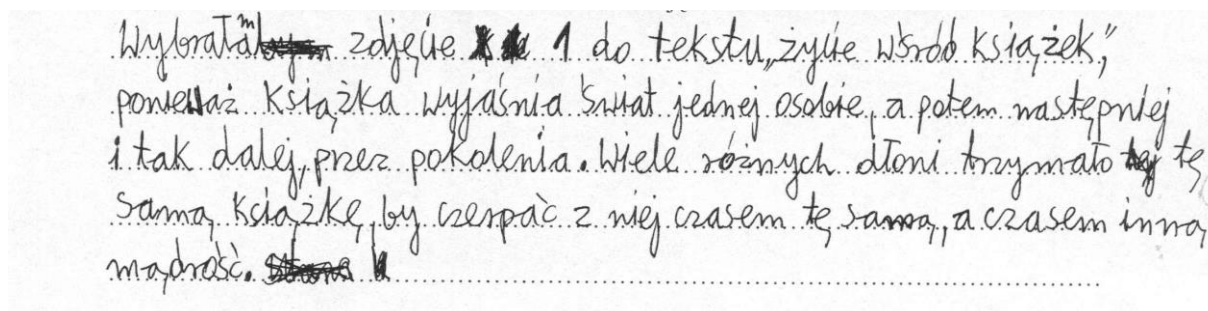 Wybrałam zdjęcie 1 do tekstu „życie wśród książek,”
ponieważ książka wyjaśnia świat jednej osobie, a potem następniej
i tak dalej, przez pokolenia. Wiele różnych dłoni trzymało tę
samą książkę, by czerpać z niej czasem tę samą, a czasem inną
mądrość.